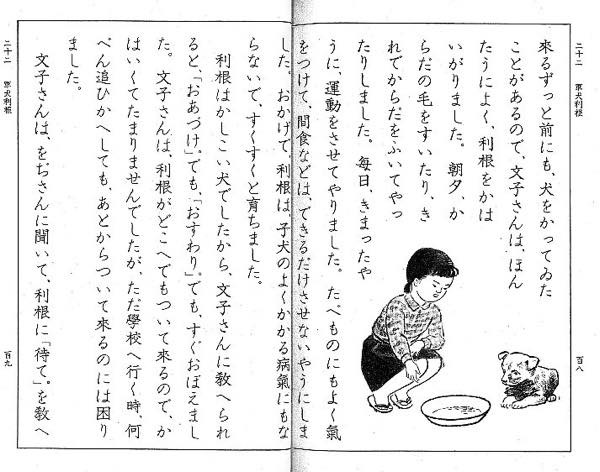 二十二　軍犬利根
百八
來るずっと前にも、犬をかってゐた
ことがあるので、文子さんは、ほん
たうによく、利根をかは
いがりました。朝夕、か
らだの毛をすいたり、き
れでからだをふいてやっ
たりしました。毎日、きまったや
うに、運動をさせてやりました。たべものにもよく氣
をつけて、間食などは、できるだけさせないやうにしま
した。おかげで、利根は、子犬のよくかかる病氣にもな
らないで、すくすくと育ちました。
利根はかしこい犬でしたから、文子さんに敎へられ
ると、「おあづけ。」でも、「おすわり。」でも、すぐおぼえまし
た。文子さんは、利根がどこへでもついて來るので、か
はいくてたまりませんでしたが、ただ學校へ行く時、何
べん追ひかへしても、あとからついて來るのには困り
ました。
文子さんは、をぢさんに聞いて、利根に「待て。」を敎へ
二十二　軍犬利根
百九